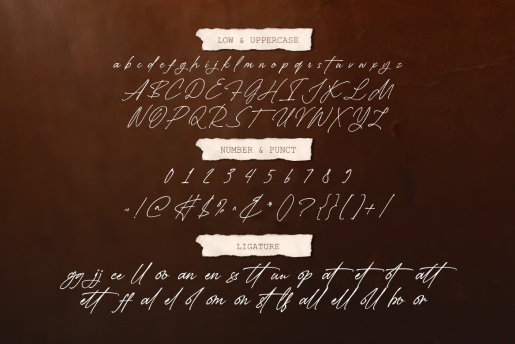 LOW & UPPERCASE
a b c d e f g h i j k l m n o p q r s t u v w x y z
A B C D E F G H I J K L M
N O P Q R S T U V W X Y Z
NUMBER & PUNCT
0 1 2 3 4 5 6 7 8 9
~ ! @ # $ % ^ & * ( ) ? { } [ ] + /
LIGATURE
gg jj ee ll oo an en ss tt uu op at et ot att
ett ff al el ol om on st ls all ell oll bo or